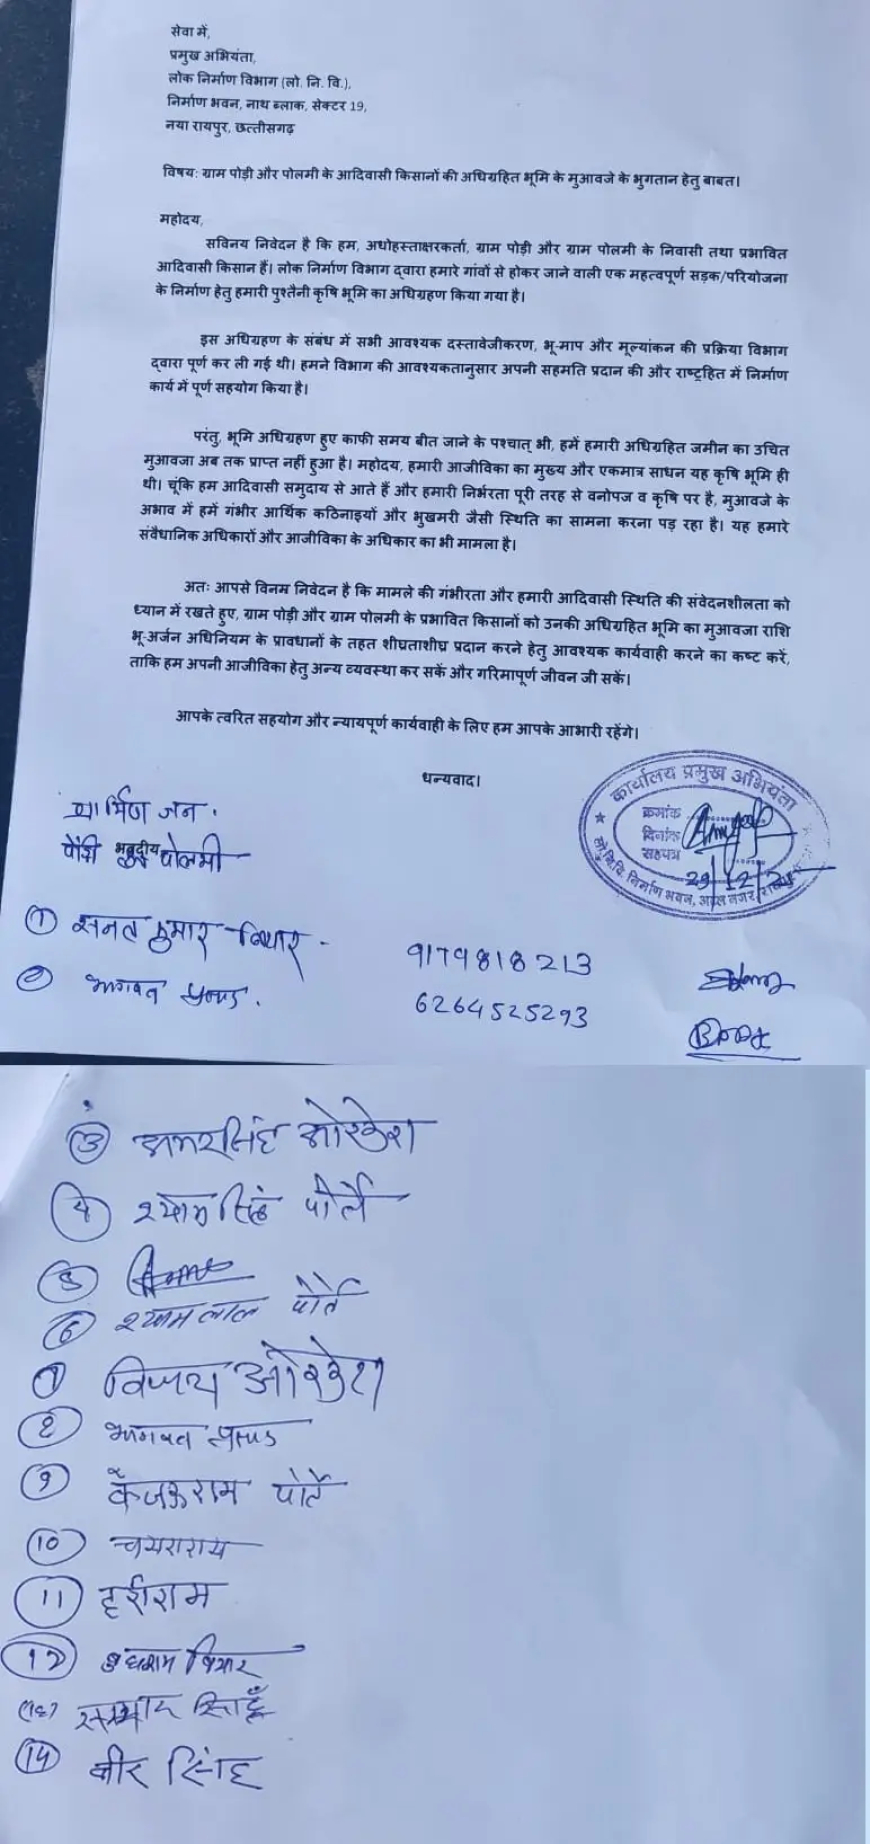 सेवा में,
प्रमुख अभियंता,
लोक निर्माण विभाग (लो. नि. वि.),
निर्माण भवन, नाथ ब्लाक, सेक्टर 19,
नया रायपुर, छत्तीसगढ़
विषय: ग्राम पोड़ी और पोलमी के आदिवासी किसानों की अधिग्रहित भूमि के मुआवजे के भुगतान हेतु बाबत।
महोदय,
सविनय निवेदन है कि हम, अधोहस्ताक्षरकर्ता, ग्राम पोड़ी और ग्राम पोलमी के निवासी तथा प्रभावित
आदिवासी किसान हैं। लोक निर्माण विभाग द्वारा हमारे गांवों से होकर जाने वाली एक महत्वपूर्ण सड़क/परियोजना
के निर्माण हेतु हमारी पुश्तैनी कृषि भूमि का अधिग्रहण किया गया है।
इस अधिग्रहण के संबंध में सभी आवश्यक दस्तावेजीकरण, भू-माप और मूल्यांकन की प्रक्रिया विभाग
द्वारा पूर्ण कर ली गई थी। हमने विभाग की आवश्यकतानुसार अपनी सहमति प्रदान की और राष्ट्रहित में निर्माण
कार्य में पूर्ण सहयोग किया है।
परंतु, भूमि अधिग्रहण हुए काफी समय बीत जाने के पश्चात् भी, हमें हमारी अधिग्रहित जमीन का उचित
मुआवजा अब तक प्राप्त नहीं हुआ है। महोदय, हमारी आजीविका का मुख्य और एकमात्र साधन यह कृषि भूमि ही
थी। चूंकि हम आदिवासी समुदाय से आते हैं और हमारी निर्भरता पूरी तरह से वनोपज व कृषि पर है, मुआवजे के
अभाव में हमें गंभीर आर्थिक कठिनाइयों और भुखमरी जैसी स्थिति का सामना करना पड़ रहा है। यह हमारे
संवैधानिक अधिकारों और आजीविका के अधिकार का भी मामला है।
अतः आपसे विनम्र निवेदन है कि मामले की गंभीरता और हमारी आदिवासी स्थिति की संवेदनशीलता को
ध्यान में रखते हुए, ग्राम पोड़ी और ग्राम पोलमी के प्रभावित किसानों को उनकी अधिग्रहित भूमि का मुआवजा राशि
भू-अर्जन अधिनियम के प्रावधानों के तहत शीघ्रताशीघ्र प्रदान करने हेतु आवश्यक कार्यवाही करने का कष्ट करें,
ताकि हम अपनी आजीविका हेतु अन्य व्यवस्था कर सकें और गरिमापूर्ण जीवन जी सकें।
आपके त्वरित सहयोग और न्यायपूर्ण कार्यवाही के लिए हम आपके आभारी रहेंगे।
धन्यवाद।
कार्यालय प्रमुख अभियंता
क्रमांक
दिनांक
सहपत्र
29/12/25
लो.नि.वि. निर्माण भवन, अटल नगर,
जन
भवदीय पोलमी
1 सनत कुमार
9179818213
2 भागवत
6264525293
3 अमरसिंह
4 श्याम सिंह पोर्ते
5
6 श्यामलाल पोर्ते
7 विजय
8 भागवत प्रसाद
9 पोर्ते
10
11
12
13
14 बीर सिंह